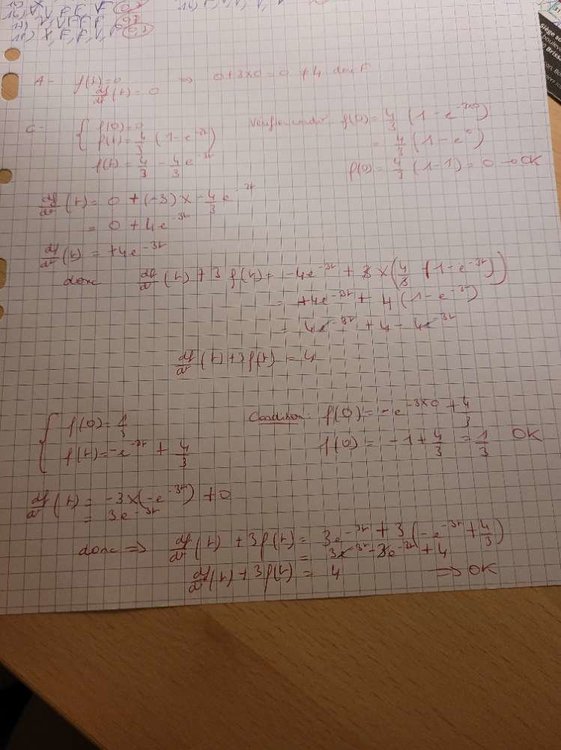 A - f(t)=0 => 0+3x0=0 ≠ 4 donc F
df/dt (t) = 0
C - { f(0)=0
f(t)=4/3 (1-e^-3t)
f(t) = 4/3 - 4/3 e^-3t
f(0)=4/3 (1-e^-3x0)
= 4/3 (1-e^0)
f(0)=4/3 (1-1)=0 → OK
df/dt (t) = 0 + (-3) x -4/3 e^-3t
= 0 + 4e^-3t
df/dt (t) = +4e^-3t
donc df/dt (t) + 3 f(t) = 4e^-3t + 3 x (4/3 (1-e^-3t))
= +4e^-3t + 4 (1-e^-3t)
= 4e^-3t + 4 - 4e^-3t
df/dt (t)+3f(t) = 4
{ f(0)=1/3
f(t)=-e^-3t + 4/3
Condition: f(0)=-e^-3x0 + 4/3
f(0) = -1+4/3 =1/3 OK
df/dt (t) = -3x(-e^-3t) +0
= 3e^-3t
donc => df/dt (t) +3f(t) = 3e^-3t + 3(-e^-3t + 4/3)
= 3e^-3t - 3e^-3t + 4
df/dt (t) + 3f(t) = 4 => OK